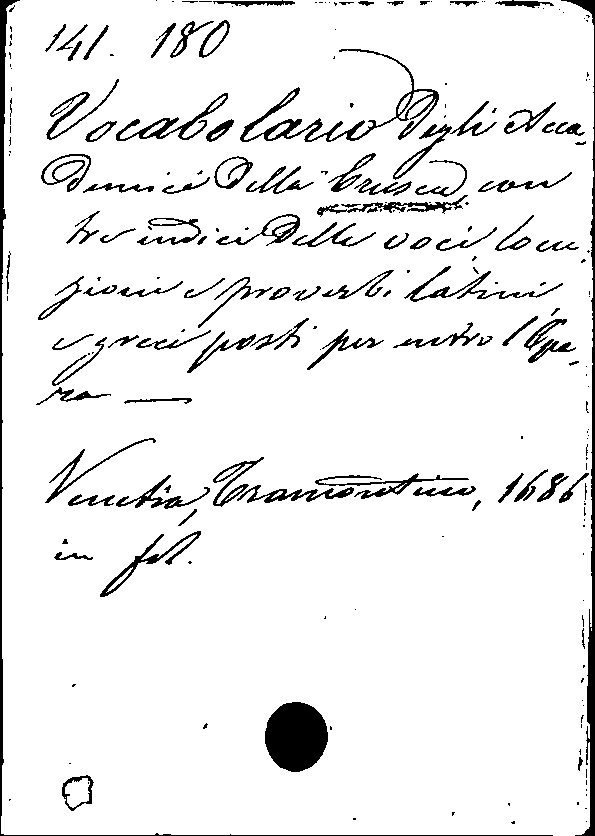 141. 180
Vocabolario degli Acca-
demici della Crusca, con
tre indici delle voci, locu-
zioni e proverbi latini,
e greci posti per entro l'Ope-
ra —
Venetia, Tramontino, 1686
in fol.